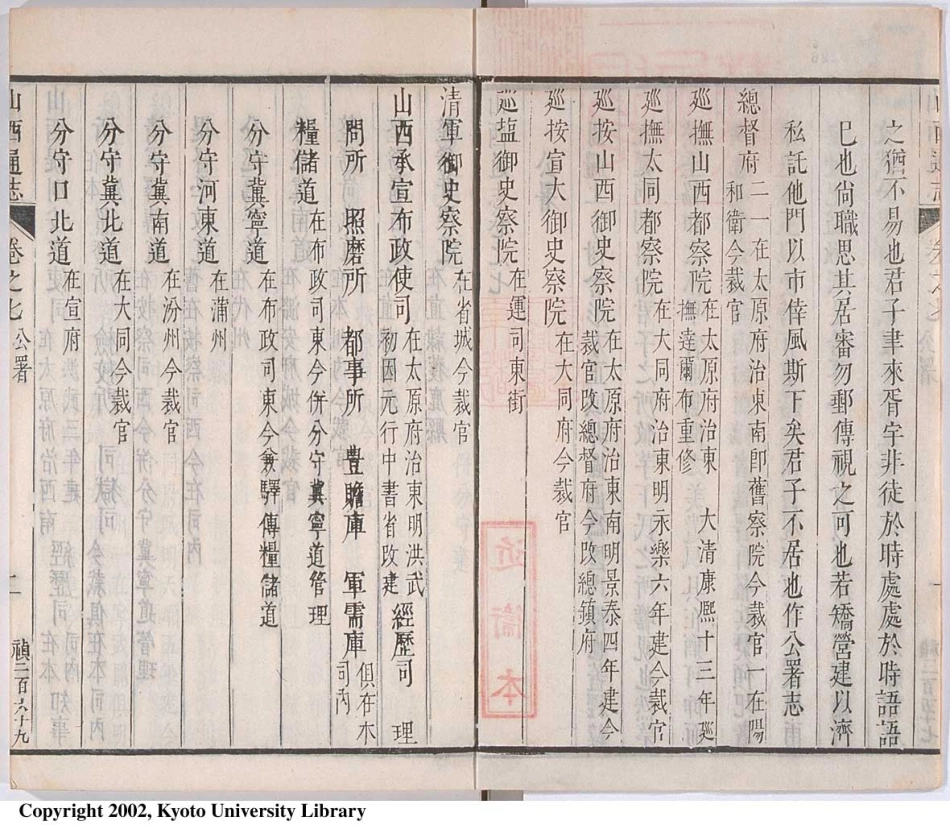 之猶不易也君子聿來胥宇非徒於時處處於時語語
已也尚職思其居審勿郵傳視之可也若矯營建以濟
私託他門以市倖風斯下矣君子不居也作公署志
總督府二一在太原府治東南即舊察院今裁官一在陽
和衛今裁官
廵撫山西都察院在太原府治東 大清康熙十三年廵
撫達爾布重修
廵撫大同都察院在大同府治東明永樂六年建今裁官
廵按山西御史察院在太原府治東南明景泰四年建今
裁官改總督府今改總鎮府
廵按宣大御史察院在大同府今裁官
廵盐御史察院在運司東街
近衛本
清軍御史察院在省城今裁官
山西承宣布政使司在太原府治東明洪武
初因元行中書省改建 經歷司 理
問所 照磨所 都事所 豊贍庫 軍需庫 俱在本
司內
糧儲道在布政司東今併分守冀寧道管理
分守冀寧道在布政司東今兼驛傳糧儲道
分守河東道在蒲州
分守冀南道在汾州今裁官
分守冀北道在大同今裁官
分守口北道在宣府
山西通志 卷之七 公署 二 禎二百六十九
Copyright 2002, Kyoto University Library